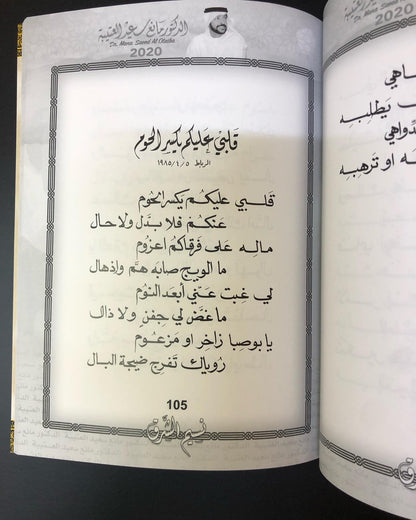 الدكتور مانع سعيد العتيبة
Dr. Mana Saeed Al Otaiba
2020
قلبي عليكم يكسر الحوم
الرباط ١٩٨٥/٤/٥
قلبي عليكم يكسر الحوم
عنكم فلا بدل ولا حال
ماله على فرقاكم اعزوم
ما الويح صابه هم واذهال
لي غبت عني أبعد النوم
ما غض لي جفن ولا ذال
يا بوصبا زاخر او مزعوم
روياك تفرج ضيجة البال
105
نسيم الشرق
يطلبه
دواهي
له او ترهبه